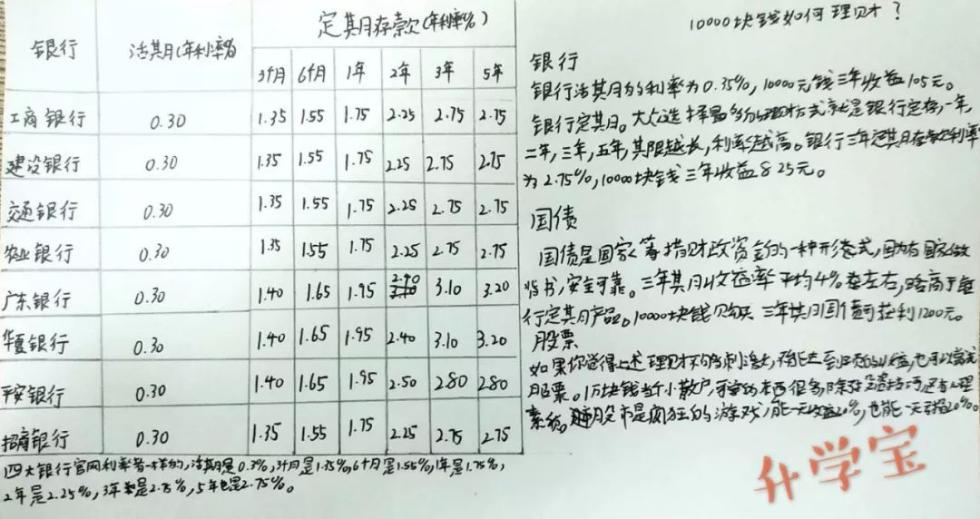 银行 活期(年利率%) 定期存款(年利率%)
3个月 6个月 1年 2年 3年 5年
工商银行 0.30 1.35 1.55 1.75 2.25 2.75 2.75
建设银行 0.30 1.35 1.55 1.75 2.25 2.75 2.75
交通银行 0.30 1.35 1.55 1.75 2.25 2.75 2.75
农业银行 0.30 1.35 1.55 1.75 2.25 2.75 2.75
广东银行 0.30 1.40 1.65 1.95 2.40 3.10 3.20
华夏银行 0.30 1.40 1.65 1.95 2.40 3.10 3.20
平安银行 0.30 1.40 1.65 1.95 2.50 2.80 2.80
招商银行 0.30 1.35 1.55 1.75 2.25 2.75 2.75
四大银行官网利率是一样的,活期是0.3%,3个月是1.35%,6个月是1.55%,1年是1.75%,
2年是2.25%,3年是2.75%,5年也是2.75%。
10000块钱如何理财?
银行
银行活期的利率为0.35%,10000元钱三年收益105元。
银行定期。大众选择最多的理财方式就是银行定存,一年,
二年,三年,五年,其限越长,利率越高。银行三年定期存款利率
为2.75%,10000块钱三年收益825元。
国债
国债是国家筹措财政资金的一种形式,因为有国家做
背书,安全可靠。三年期收益率平均4%左右,略高于银
行定期产品。10000块钱购买三年期国债可获利1200元。
股票
如果你觉得上述理财不够刺激,也可以尝试
股票。1万块钱当个小散户,可学的东西很多,
股市是疯狂的游戏,能一天收益10%,也能一天亏损10%。
升学宝